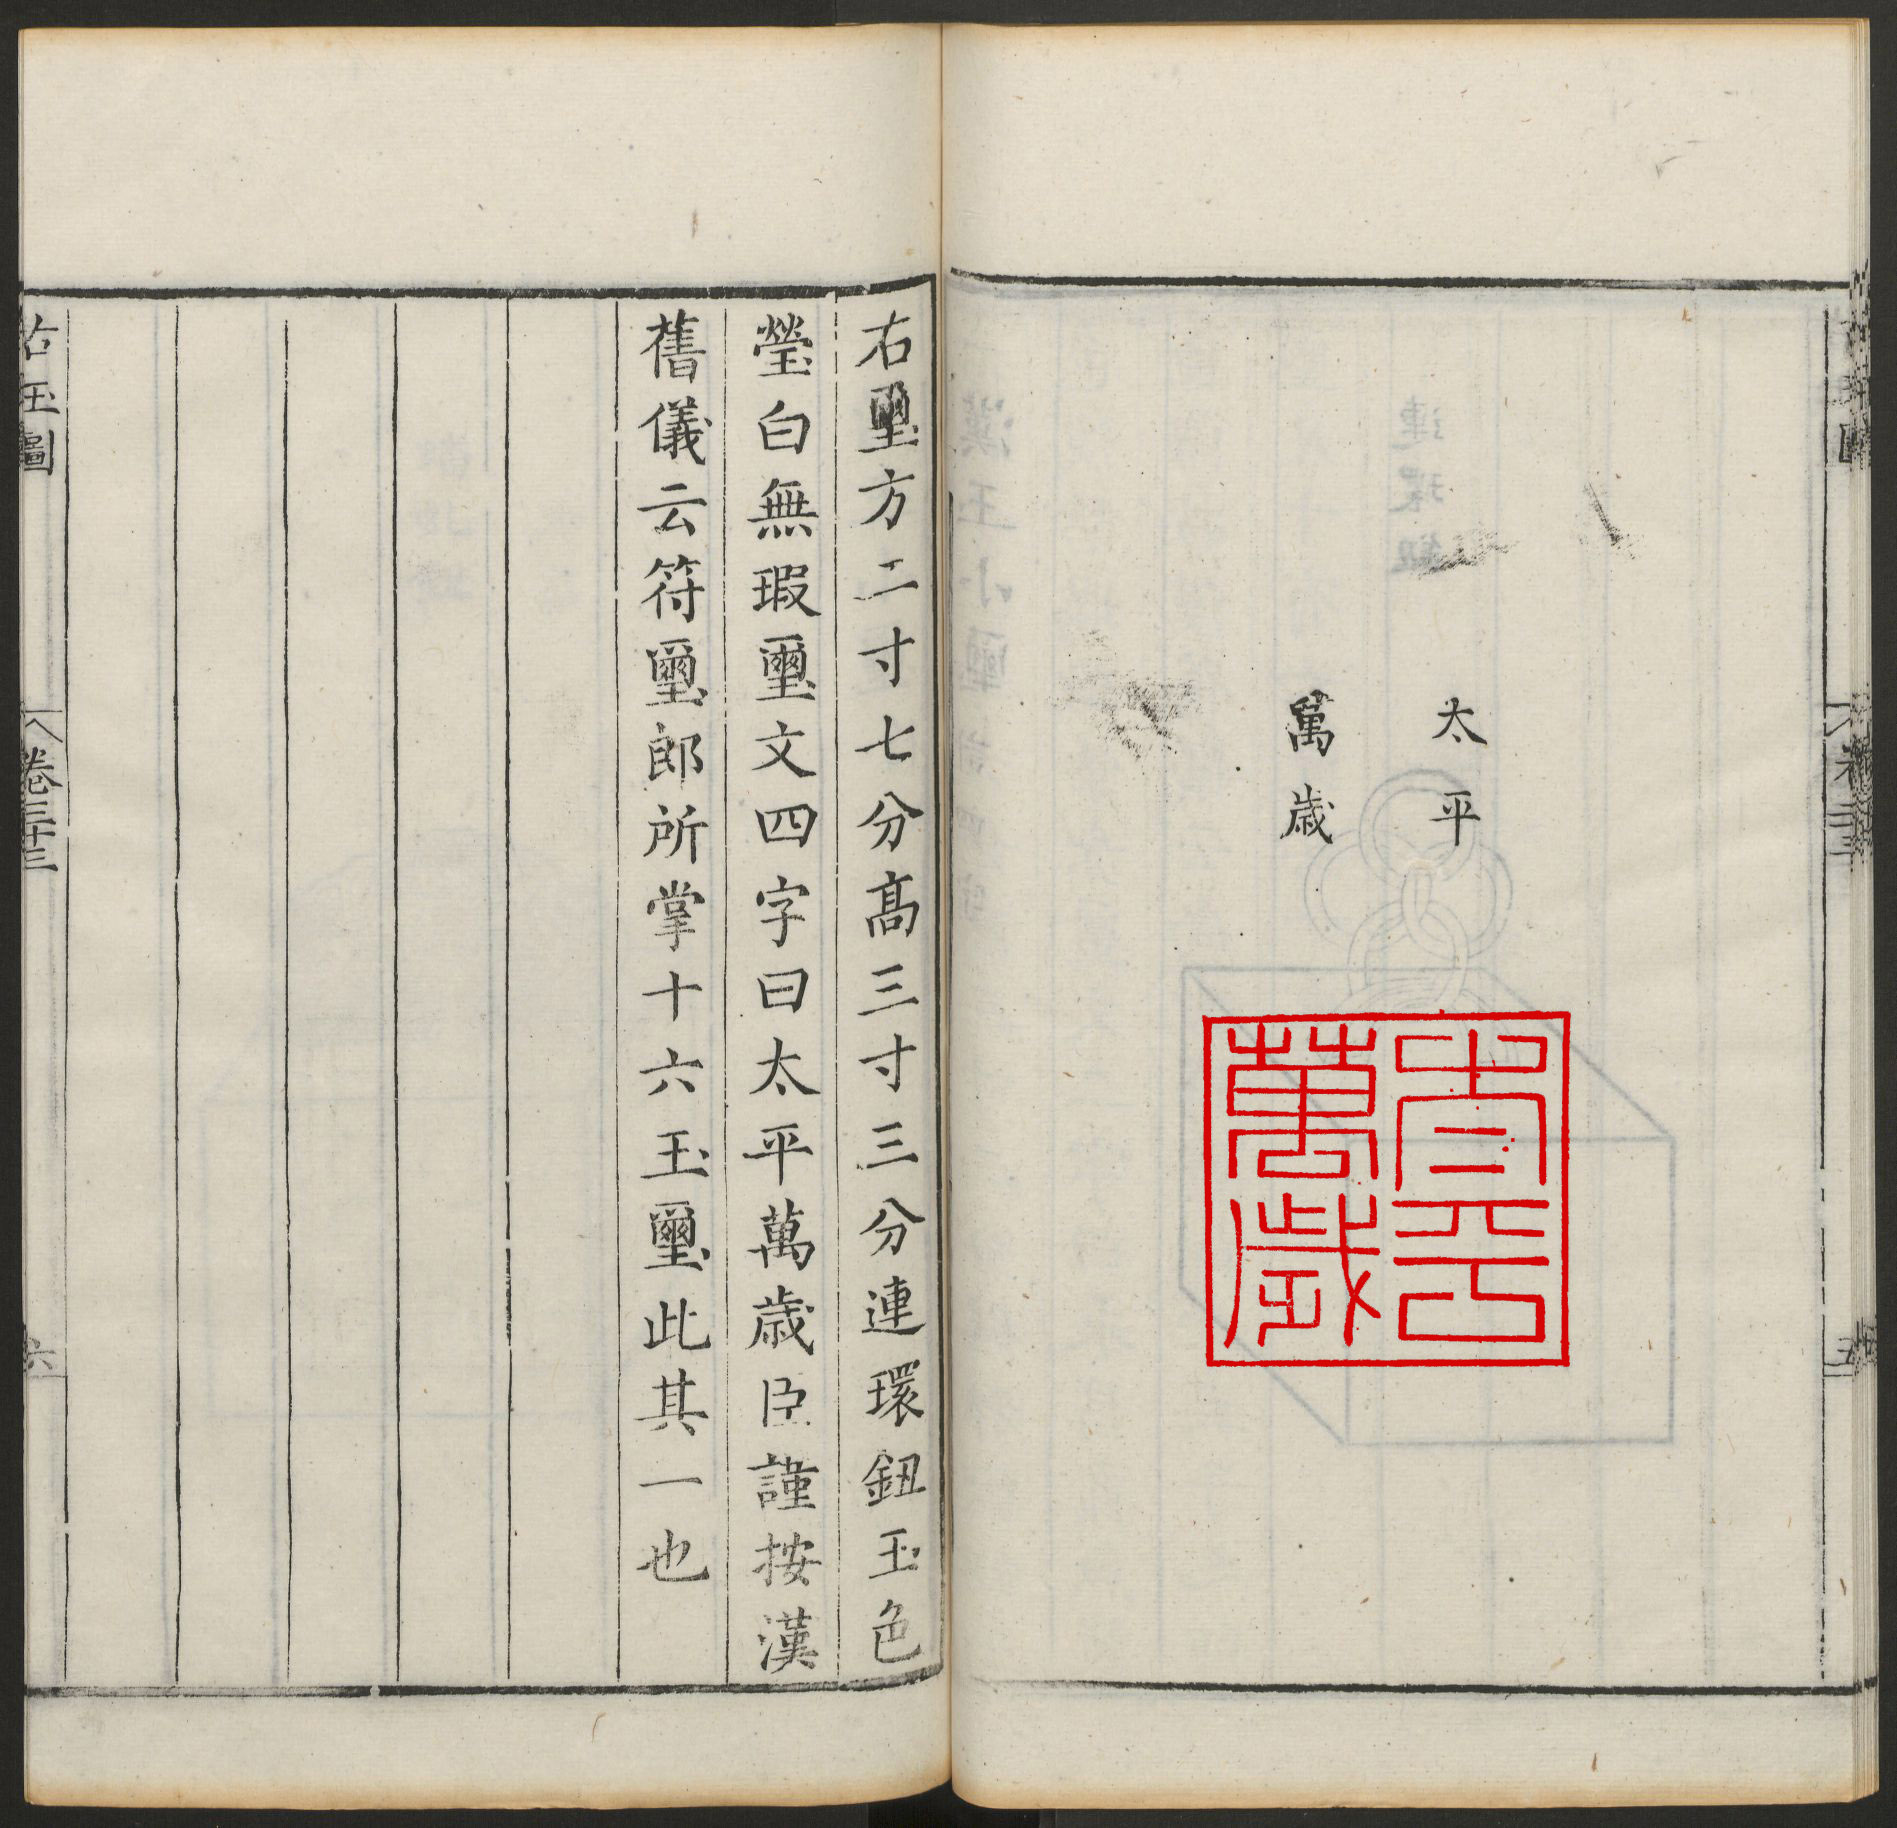 太平
萬歲
太平
萬歲
右璽方二寸七分高三寸三分連環鈕玉色
瑩白無瑕璽文四字曰太平萬歲臣謹按漢
舊儀云符璽郎所掌十六玉璽此其一也
古玉圖
卷三十三
六